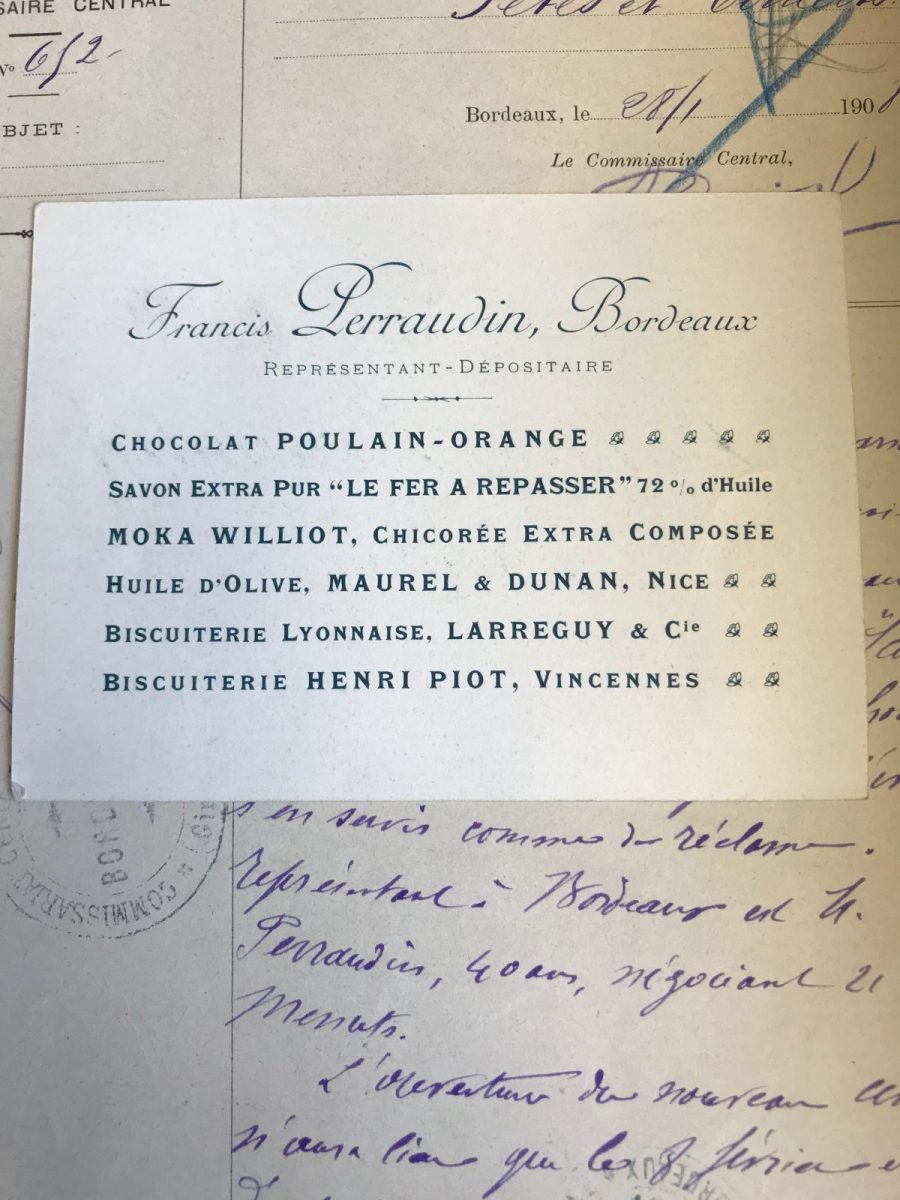 SSAIRE CENTRAL
Nº 652
BJET :
Fêtes et
Bordeaux, le 28/1 1908
Le Commissaire Central,
Francis Perraudin, Bordeaux
REPRÉSENTANT-DÉPOSITAIRE
CHOCOLAT POULAIN-ORANGE
SAVON EXTRA PUR “LE FER A REPASSER” 72 % d'Huile
MOKA WILLIOT, CHICORÉE EXTRA COMPOSÉE
HUILE D'OLIVE, MAUREL & DUNAN, NICE
BISCUITERIE LYONNAISE, LARREGUY & Cie
BISCUITERIE HENRI PIOT, VINCENNES
COMMISSARIAT
s'en servir comme de réclame.
Représentant à Bordeaux est M.
Perraudin, 40 ans, négociant 21
L'ouverture du nouveau
n'aura lieu que le 8 février